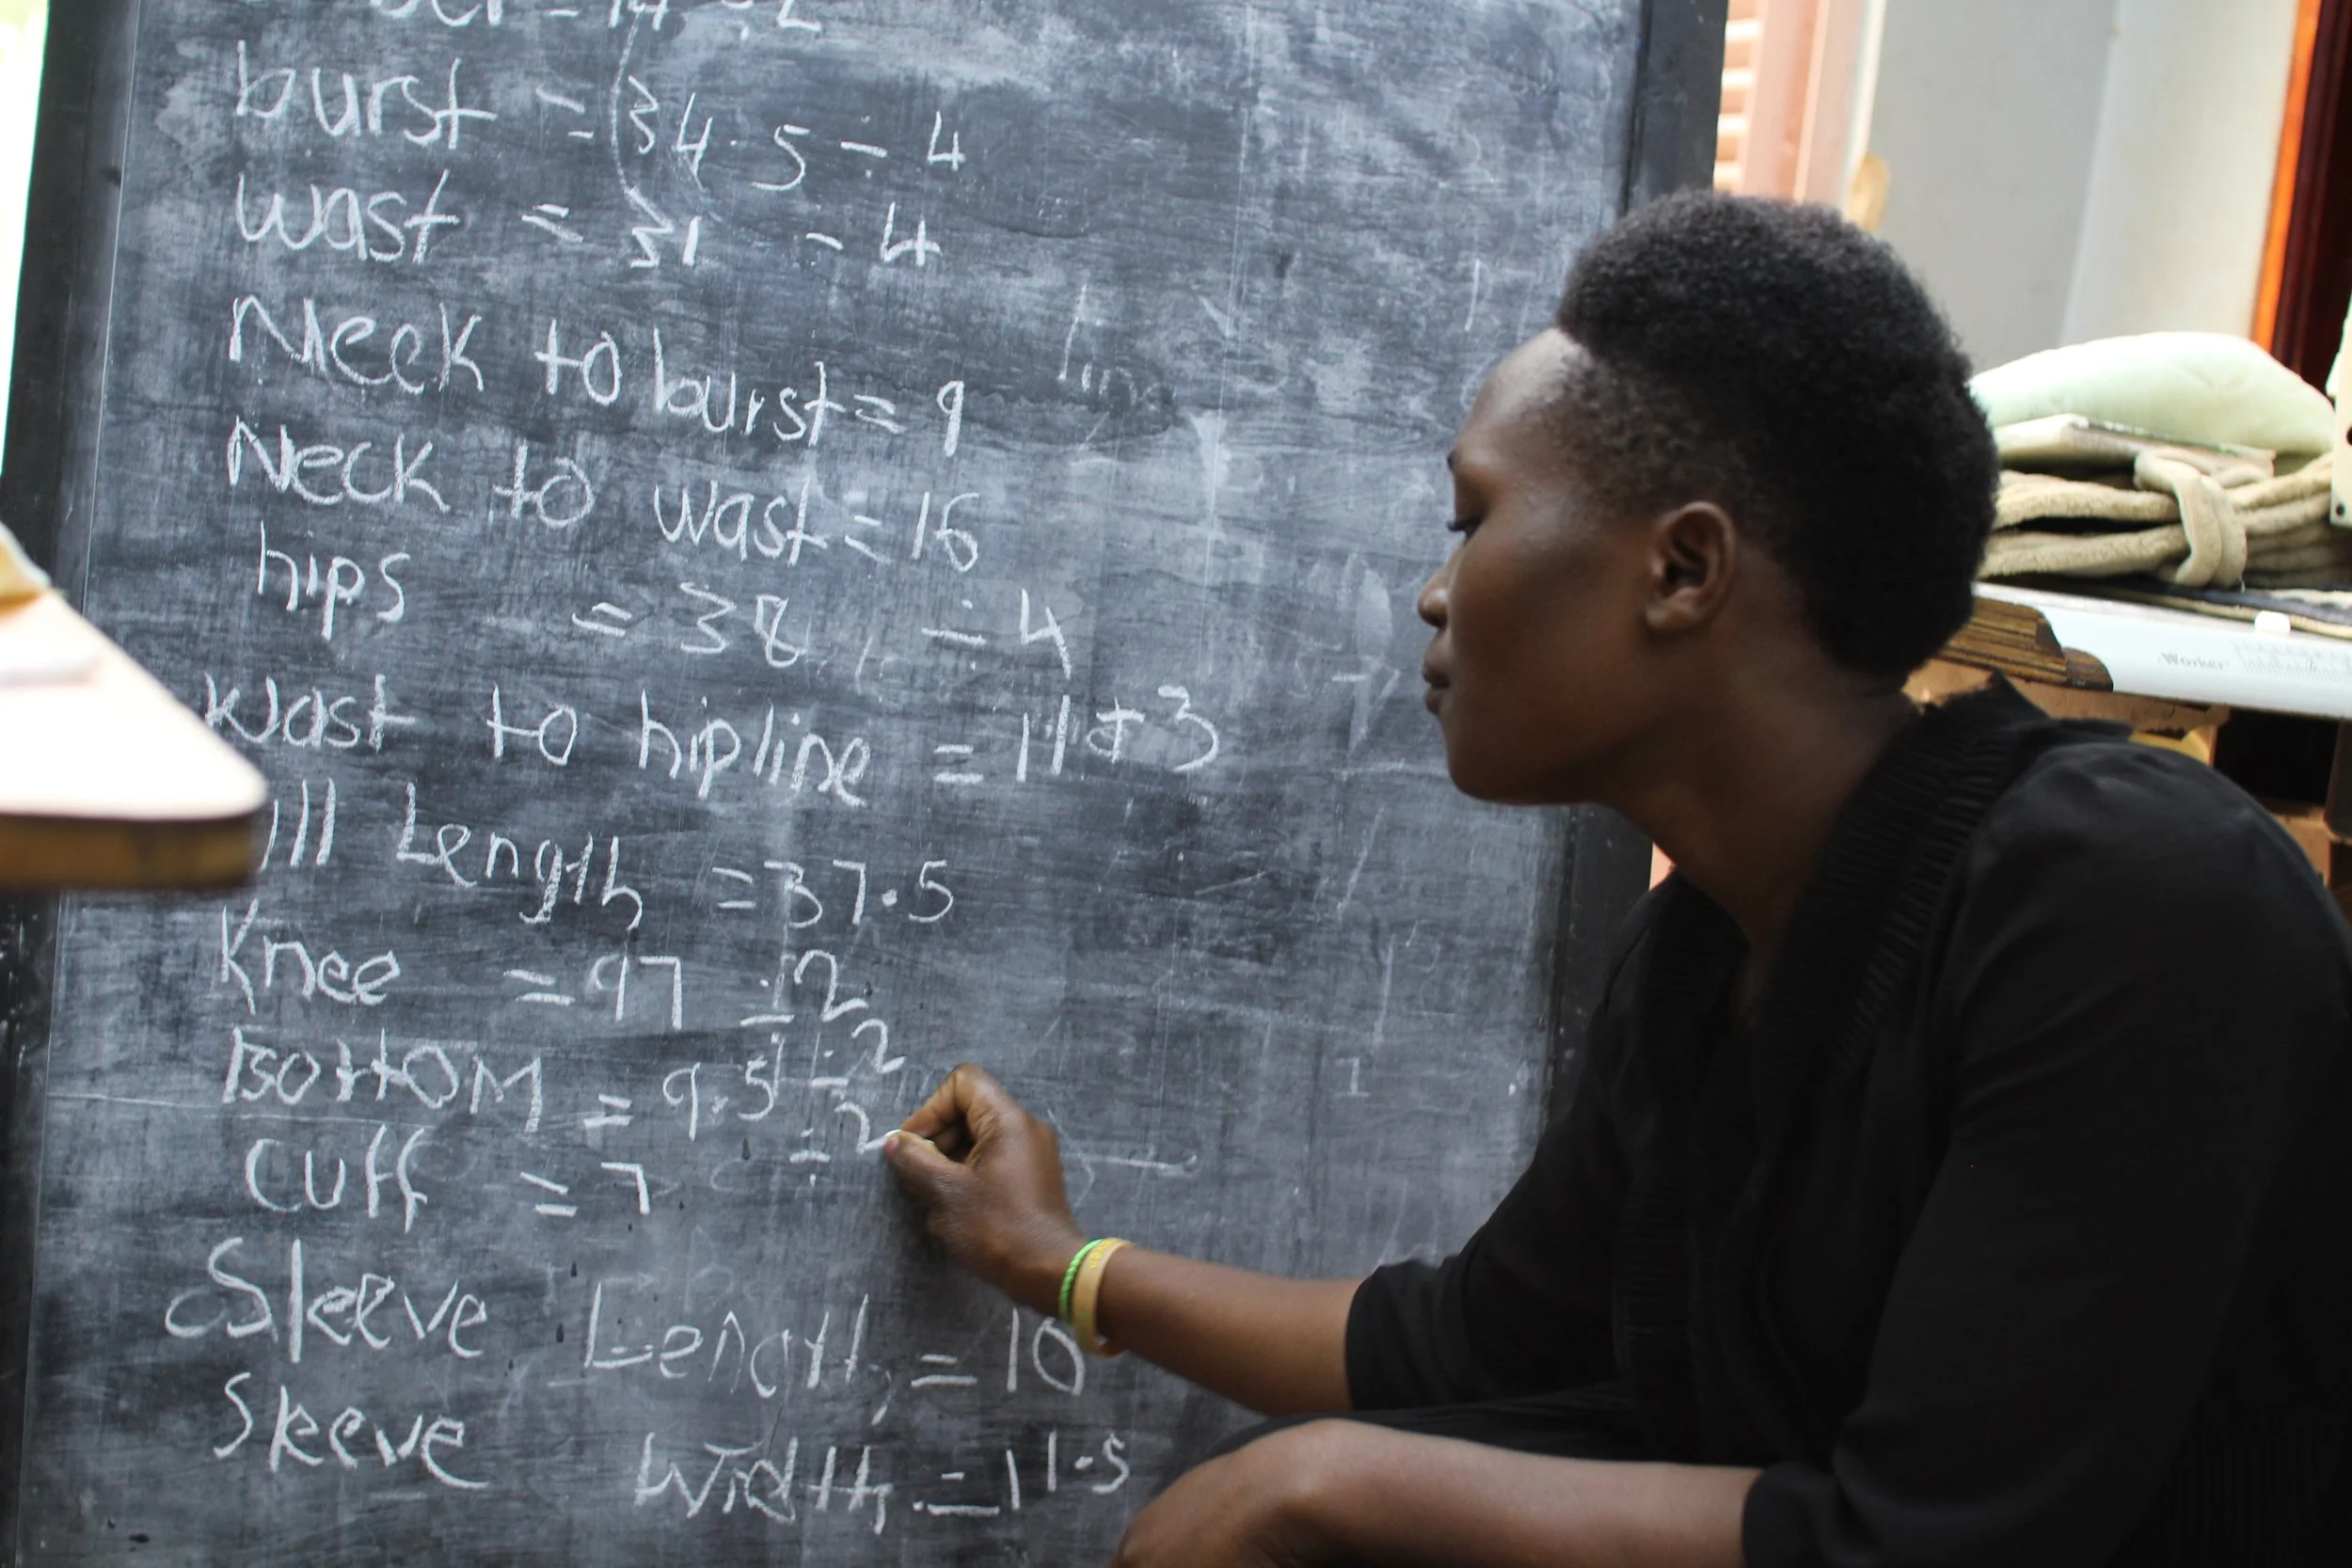 burst = 34.5 ÷ 4
wast = 31 ÷ 4
Neck to burst = 9
Neck to wast = 16
hips = 38 ÷ 4
wast to hipline = 11 + 3
Length = 37.5
Knee = 97 ÷ 2
Bottom = 9.5 ÷ 2
cuff = 7 ÷ 2
Sleeve Length = 10
Sleeve Width = 11.5
Worker